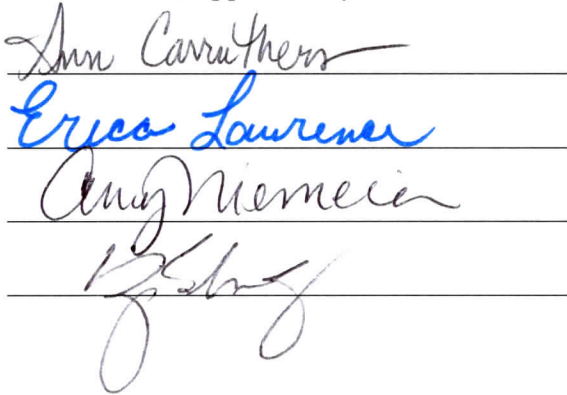 Ann Carruthers
Erica Lawrence
Amy Niemeier